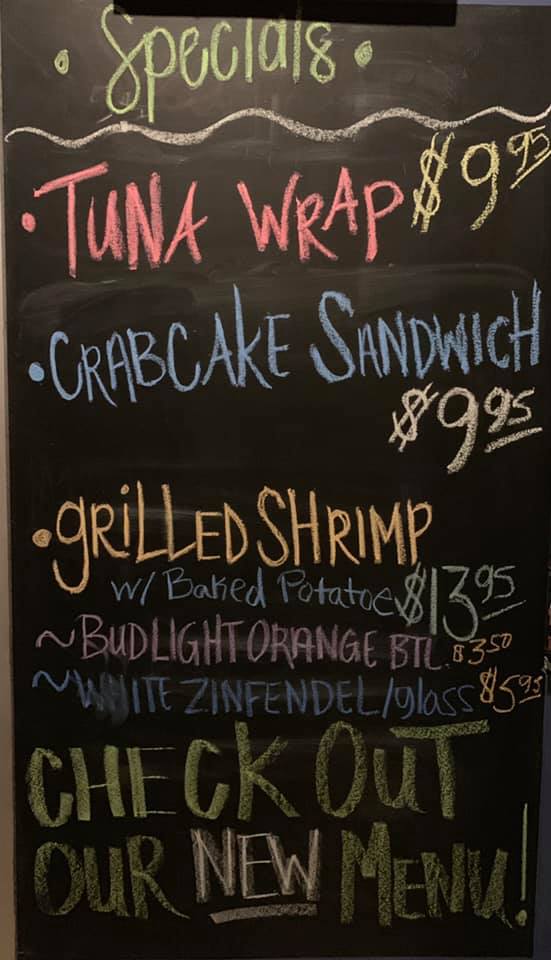 • Specials •
• TUNA WRAP $9 95
• CRABCAKE SANDWICH
$9 95
• GRiLLED SHRIMP
w/ Baked Potatoe $13 95
~ BUDLIGHT ORANGE BTL. $3 50
~ WHITE ZINFENDEL/glass $5 95
CHECK OUT
OUR NEW MENU!